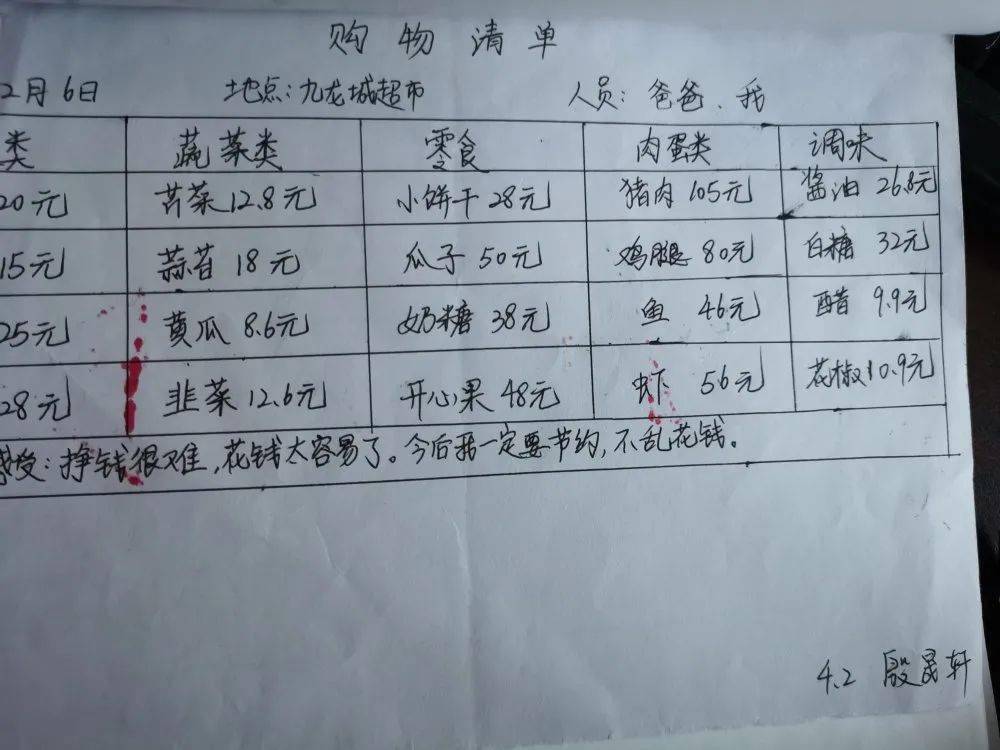 购物清单
2月6日 地点:九龙城超市 人员:爸爸、我
类 蔬菜类 零食 肉蛋类 调味
20元 苦菜12.8元 小饼干28元 猪肉105元 酱油26.8元
15元 蒜苔18元 瓜子50元 鸡腿80元 白糖32元
25元 黄瓜8.6元 奶糖38元 鱼46元 醋9.9元
28元 韭菜12.6元 开心果48元 虾56元 花椒10.9元
感受:挣钱很难,花钱太容易了。今后我一定要节约,不乱花钱。
4.2 殷晟轩